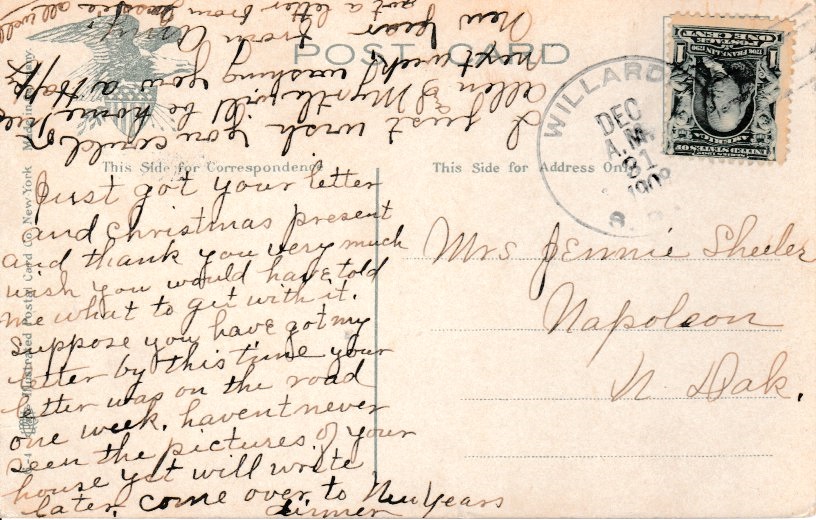 POST CARD
This Side for Correspondence
This Side for Address Only
WILLARD
DEC
A.M.
31
1908
ONE CENT
UNITED STATES OF
AMERICA
Just got your letter
and Christmas present
and thank you very much
wish you would have told
me what to get with it.
suppose you have got my
letter by this time your
letter was on the road
one week. havent never
seen the pictures of your
house yet will write
later, come over to New Years
dinner
I just wish you could
Allen & Myrtle will be home
next week wishing you a Happy
New Year from Amy
got a letter from Jessie all well
Mrs Jennie Sheeler
Napoleon
N. Dak.
Illustrated Postal Card Co., New York